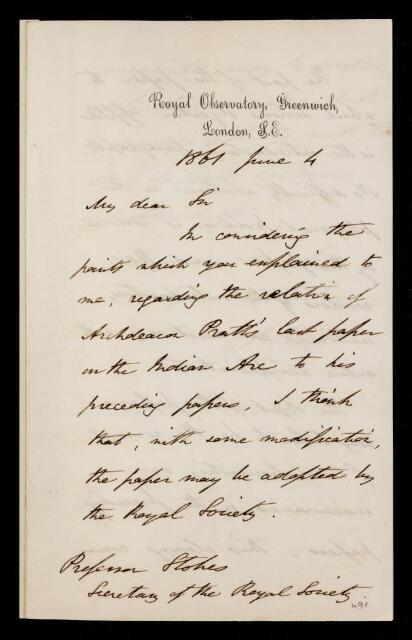 Royal Observatory, Greenwich,
London, S.E.
1861 June 4
My dear Sir
In considering the
points which you explained to
me, regarding the relation of
Archdeacon Pratt's last paper
on the Indian Arc to his
preceding papers, I think
that, with some modification,
the paper may be adopted by
the Royal Society.
Professor Stokes
Secretary of the Royal Society
491